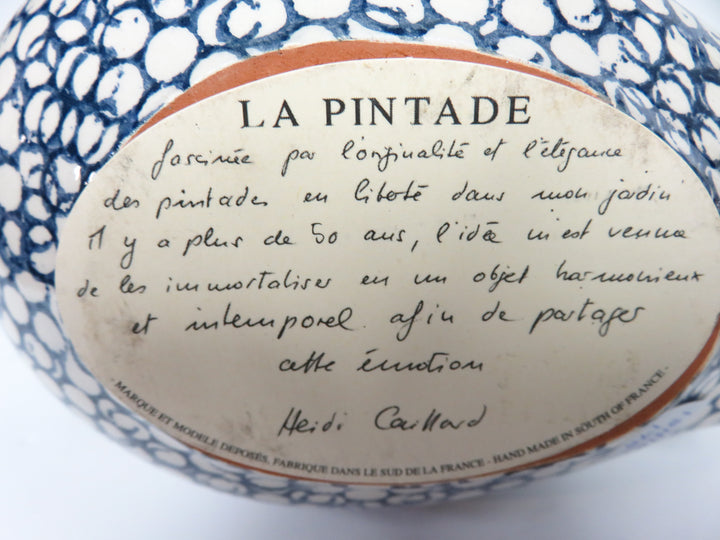 LA PINTADE
fascinée par l'originalité et l'élégance
des pintades en liberté dans mon jardin
Il y a plus de 50 ans, l'idée m'est venue
de les immortaliser en un objet harmonieux
et intemporel. afin de partager
cette émotion
Heidi Caillard
- MARQUE ET MODELE DEPOSÉS, FABRIQUE DANS LE SUD DE LA FRANCE - HAND MADE IN SOUTH OF FRANCE -